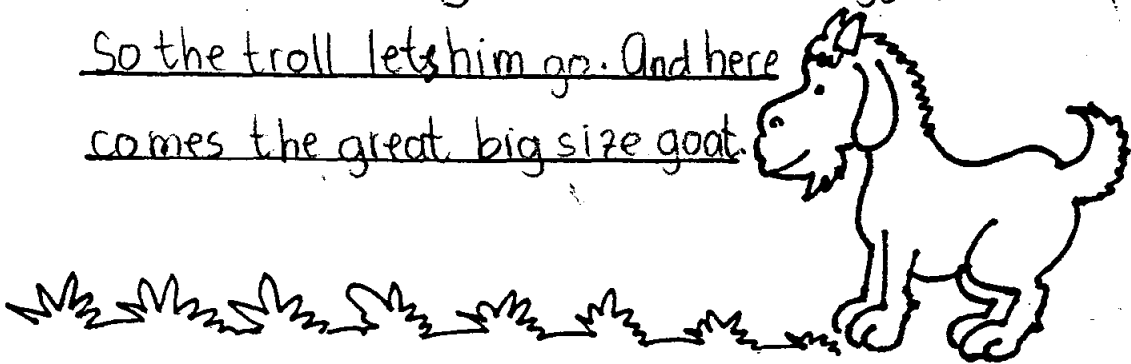 So the troll lets him go. And here
comes the great big size goat.